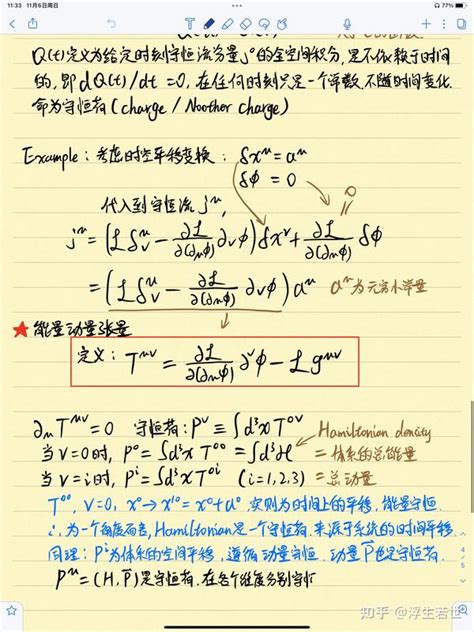 11:33 11月6日周日
77%
Q(t)定义为给定时刻守恒流分量j⁰的全空间积分,是不依赖于时间
的,即dQ(t)/dt =0,在任何时刻只是一个常数,不随时间变化.
命为守恒荷(charge / Noether charge)
Example: 考虑时空平移变换: δx^μ = a^μ
δϕ = 0
代入到守恒流 j^μ,
0
j^μ = (ℒδ^μ_ν - ∂ℒ/∂(∂_μϕ) ∂_νϕ)δx^ν + ∂ℒ/∂(∂_μϕ) δϕ
= (ℒδ^μ_ν - ∂ℒ/∂(∂_μϕ) ∂_νϕ) a^μ a^μ为无穷小常量
★ 能量动量张量
定义: T^{μν} = ∂ℒ/∂(∂_μϕ) ∂^νϕ - ℒg^{μν}
∂_μT^{μν}=0 守恒荷: P^ν ≡ ∫d³x T^{0ν} Hamiltonian density
当ν=0时, P⁰=∫d³x T⁰⁰ = ∫d³xℋ = 体系的总能量
当ν=i时, P^i=∫d³x T^{0i} (i=1,2,3) = 总动量
T⁰⁰, ν=0, x⁰→x'⁰=x⁰+a⁰, 实则为时间上的平移,能量守恒
∴ 为一个角度而言,Hamiltonian是一个守恒荷,来源于系统的时间平移.
同理: P^i为体系的空间平移,遵循动量守恒,动量P⃗也是守恒荷.
P^μ=(H,P⃗)是守恒荷,在各个维度分别守恒
4/5
知乎 @浮生若世